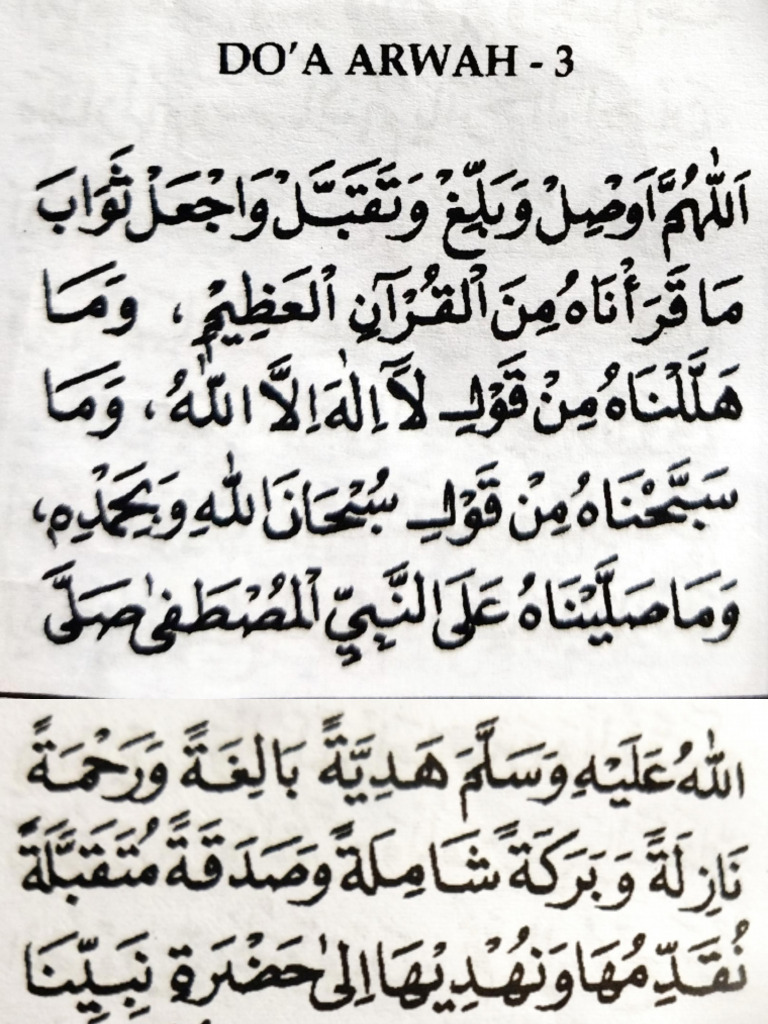 DO'A ARWAH - 3
اَللّٰهُمَّ اَوْصِلْ وَبَلِّغْ وَتَقَبَّلْ وَاجْعَلْ ثَوَابَ
مَا قَرَأْنَاهُ مِنَ الْقُرْآنِ الْعَظِيْمِ ، وَمَا
هَلَّلْنَاهُ مِنْ قَوْلِ لَآ اِلٰهَ اِلَّا اللّٰهُ ، وَمَا
سَبَّحْنَاهُ مِنْ قَوْلِ سُبْحَانَ اللّٰهِ وَبِحَمْدِهِ ،
وَمَا صَلَّيْنَاهُ عَلَى النَّبِيِّ الْمُصْطَفٰى صَلَّى
اللّٰهُ عَلَيْهِ وَسَلَّمَ هَدِيَّةً بَالِغَةً وَرَحْمَةً
نَازِلَةً وَبَرَكَةً شَامِلَةً وَصَدَقَةً مُتَقَبَّلَةً
نُقَدِّمُهَا وَنُهْدِيْهَا اِلٰى حَضْرَةِ نَبِيِّنَا